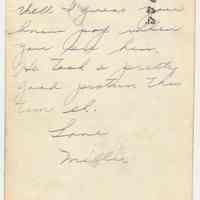 Well I guess you
know pop when
you see him.
He took a pretty
good picture this
time
Love
Millie